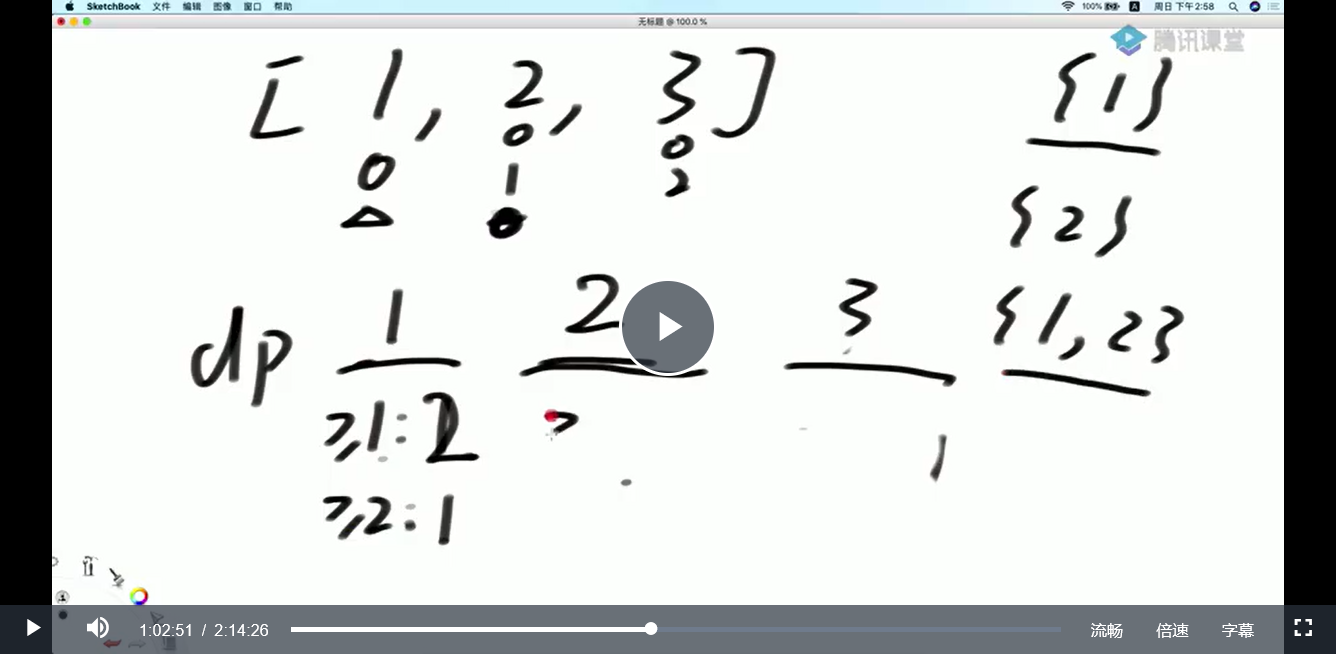 SketchBook 文件 编辑 图像 窗口 帮助 100% 周日 下午2:58
无标题 @ 100.0 %
腾讯课堂
[ 1, 2, 3 ] {1}
0 0
0 1 2
{2}
dp 1 2 3 {1,2}
≥1:2 >
1
≥2:1
1:02:51 / 2:14:26 流畅 倍速 字幕